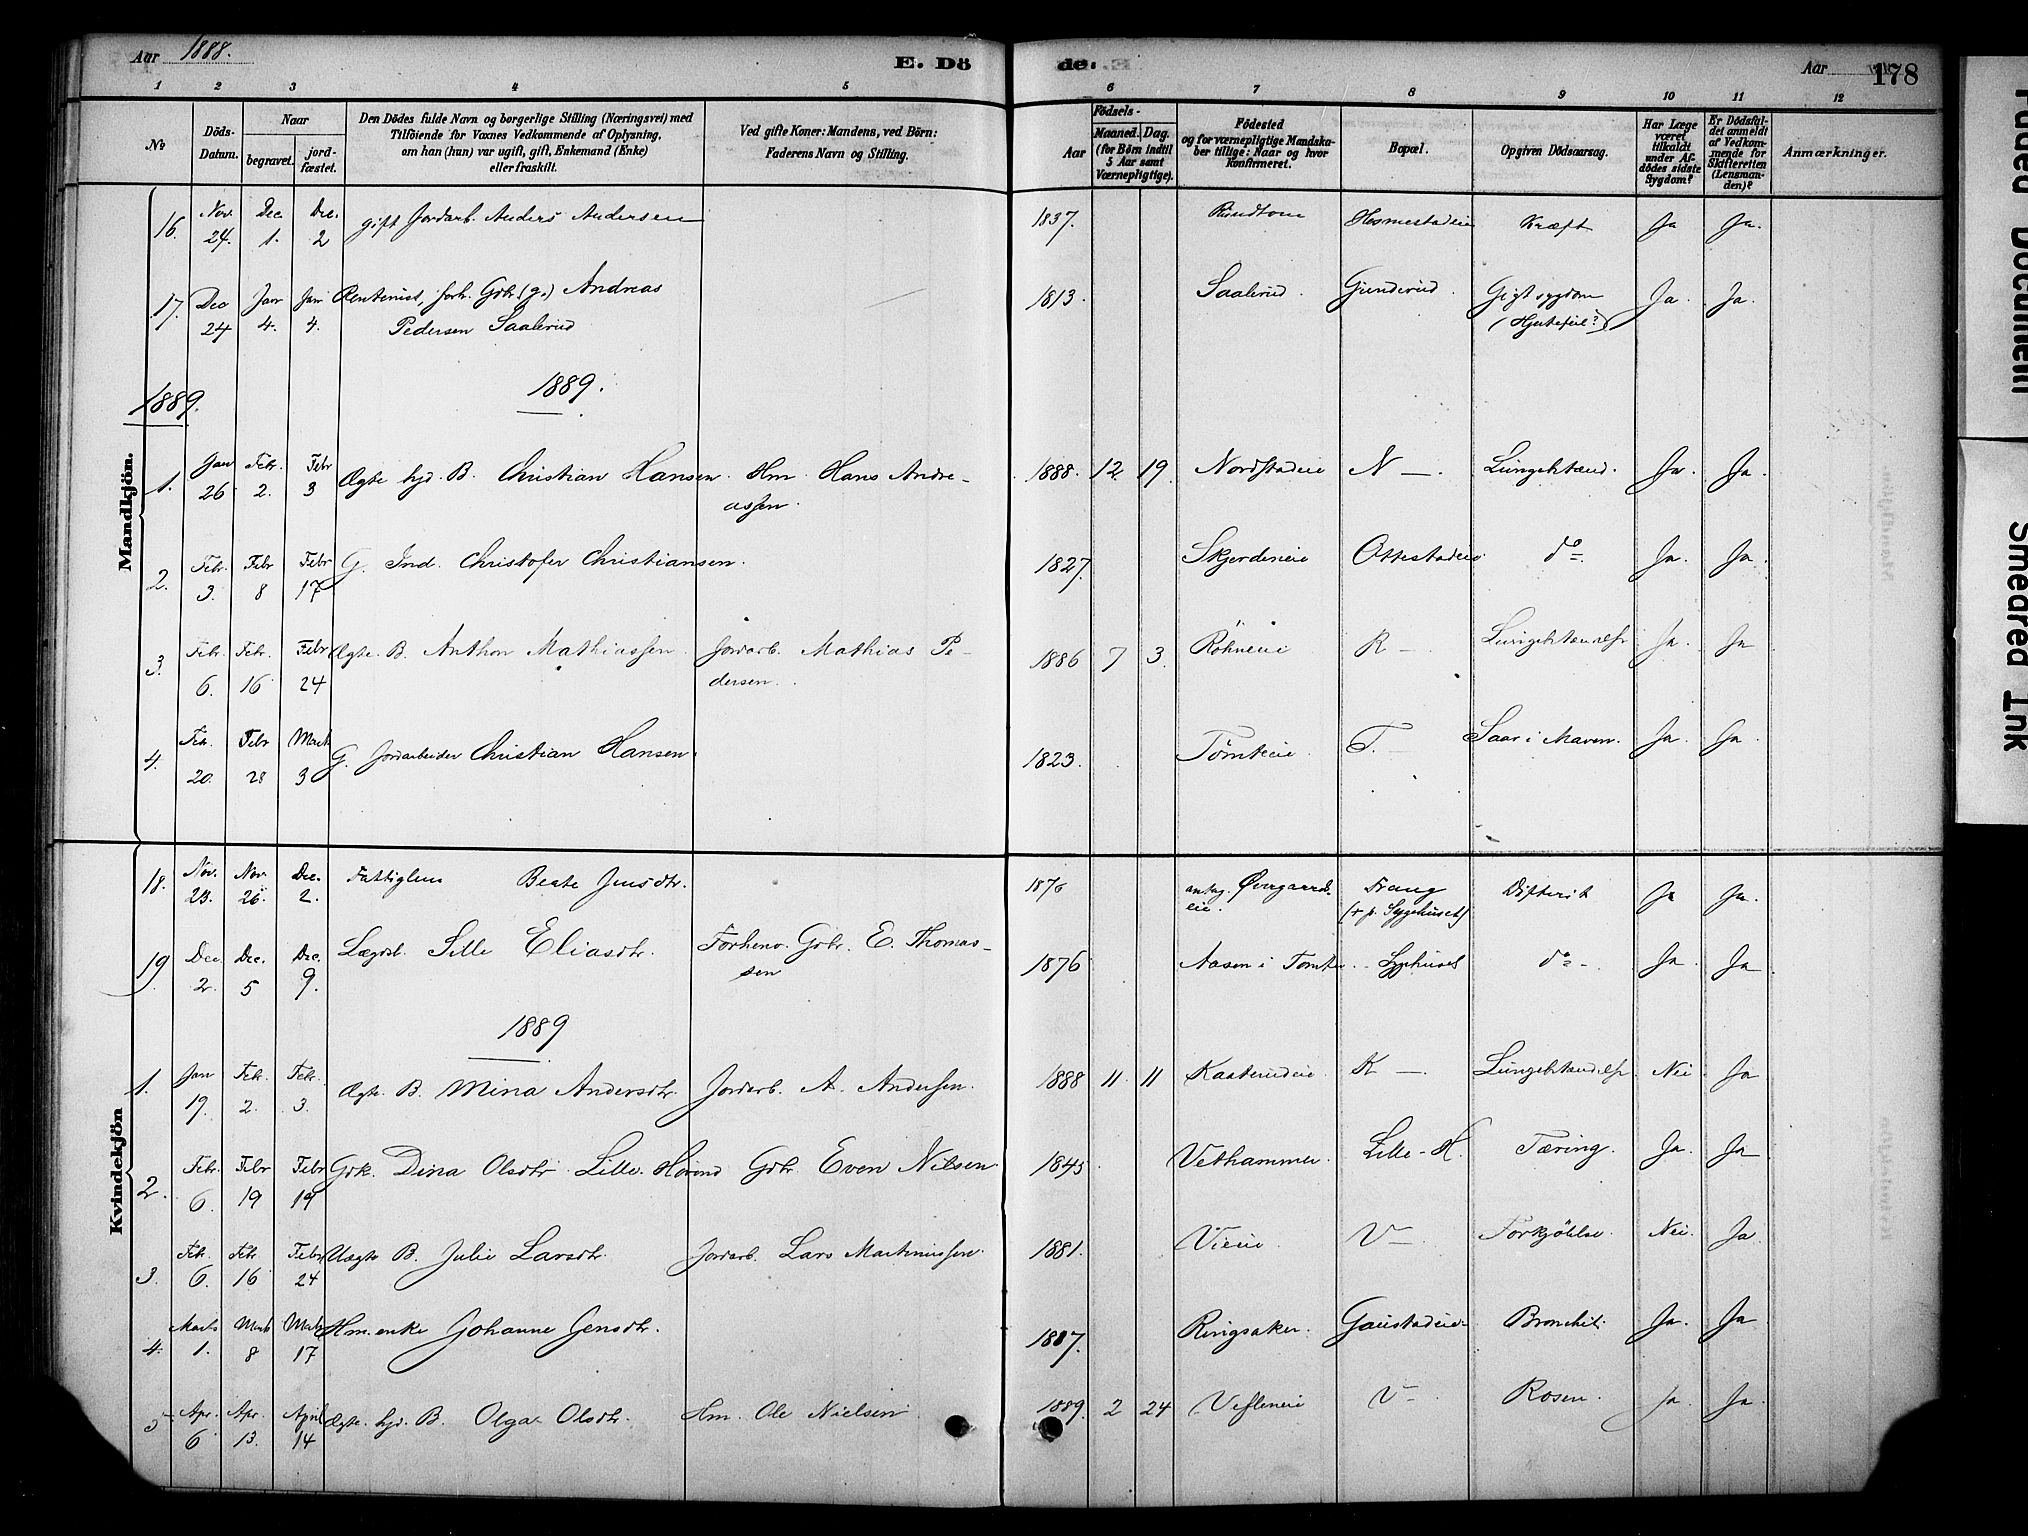 Aar 1888.
E. Dö
de.
Aar
178
1 2 3 4 5 6 7 8 9 10 11 12
No
Döds-Datum.
Naar
begravet.
jord-fæstet.
Den Dödes fulde Navn og borgerlige Stilling (Næringsvei) med
Tilföiende for Voxnes Vedkommende af Oplysning,
om han (hun) var ugift, gift, Enkemand (Enke)
eller fraskilt.
Ved gifte Koner: Mandens, ved Börn:
Faderens Navn og Stilling.
Födsels-
Aar
Maaned. Dag.
(for Börn indtil
5 Aar samt
Værnepligtige).
Födested
og for værnepligtige Mandska-
ber tillige: Naar og hvor
konfirmeret.
Bopæl.
Opgiven Dödsaarsag.
Har Læge
været
tilkaldt
under Af-
dödes sidste
Sygdom?
Er Dödsfal-
det anmeldt
af Vedkom-
mende for
Skifteretten
(Lensman-
den)?
Anmærkninger.
Mandkjön.
16. Nov. 24. Dec 1. Dec. 2 gift Jordarb. Anders Andersen 1837. Rundtom Hommestadeie Kræft Ja Ja.
17. Dec 24 Jan 4. Jan 4. Rentenist, forh. Gbr. (g.) Andreas 1813. Saalerud. Gunderud. Gigtsygdom Ja. Ja.
Pedersen Saalerud (Hjertefeil?)
1889. 1889.
1. Jan 26 Febr. 2. Febr 3 Ægte hjd. B. Christian Hansen. Hm. Hans Andre- 1888. 12. 19. Nordstadeie N —. Lungebetænd. Ja. Ja.
assen.
2. Febr. 3. Febr 8 Febr 17 G. Ind. Christofer Christiansen. 1827. Skjerdeneie Ottestadeie. do Ja. Ja.
3. Febr. 6. Febr. 16 Febr 24 Ægte. B. Anthon Mathiassen. Jordarb. Mathias Pe- 1886 7 3. Röhneeie R — Lungebetændelse Ja. Ja
dersen.
4. Febr. 20. Febr 28 Marts 3 G. Jordarbeider Christian Hansen. 1823. Tömteeie T. — Saar i Maven. Ja. Ja.
Kvindekjön
18. Nov. 23. Nov. 26. Dec. 2. Fattiglem Beate Jensdtr. 1876 antag. Övergaards- Vang Difterit Ja Ja.
eie. (+ p. Sygehuset)
19. Dec 2. Dec. 5 Dec. 9. Lægdsl. Sille Eliasdtr. Forhenv. Gbr. E. Thomas- 1876 Aasen i Tomter Sygehuset do Ja Ja
sen
1889
1. Jan 19. Febr. 2. Febr. 3. Ægte. B. Mina Andersdtr. Jordarb. A. Andersen. 1888 11. 11 Kaaterudeie. K —. Lungebetændelse Nei Ja
2. Febr. 6. Febr 19 Febr 19 Gdk. Dina Olsdtr. Lille-Hovind Gbr. Even Nilsen 1845 Vethammer. Lille-H. Tæring. Ja. Ja
3. Febr. 6. Febr. 16 Febr. 24 Uægte B. Julie Larsdtr. Jordarb. Lars Martinussen. 1881. Vieie V — Forkjölelse. Nei. Ja.
4. Marts 1. Marts 8 Marts 17 Hm.enke Johanne Jensdtr. 1807. Ringsaker. Gaustadeie. Bronchit. Ja. Ja
5 Apr. 6 Apr. 13. April 14 Ægte. hjd. B. Olga Olsdtr. Hm. Ole Nielsen 1889. 2 24 Vesleneie V — Rosen. Ja. Ja.
Faded Document
Smeared Ink